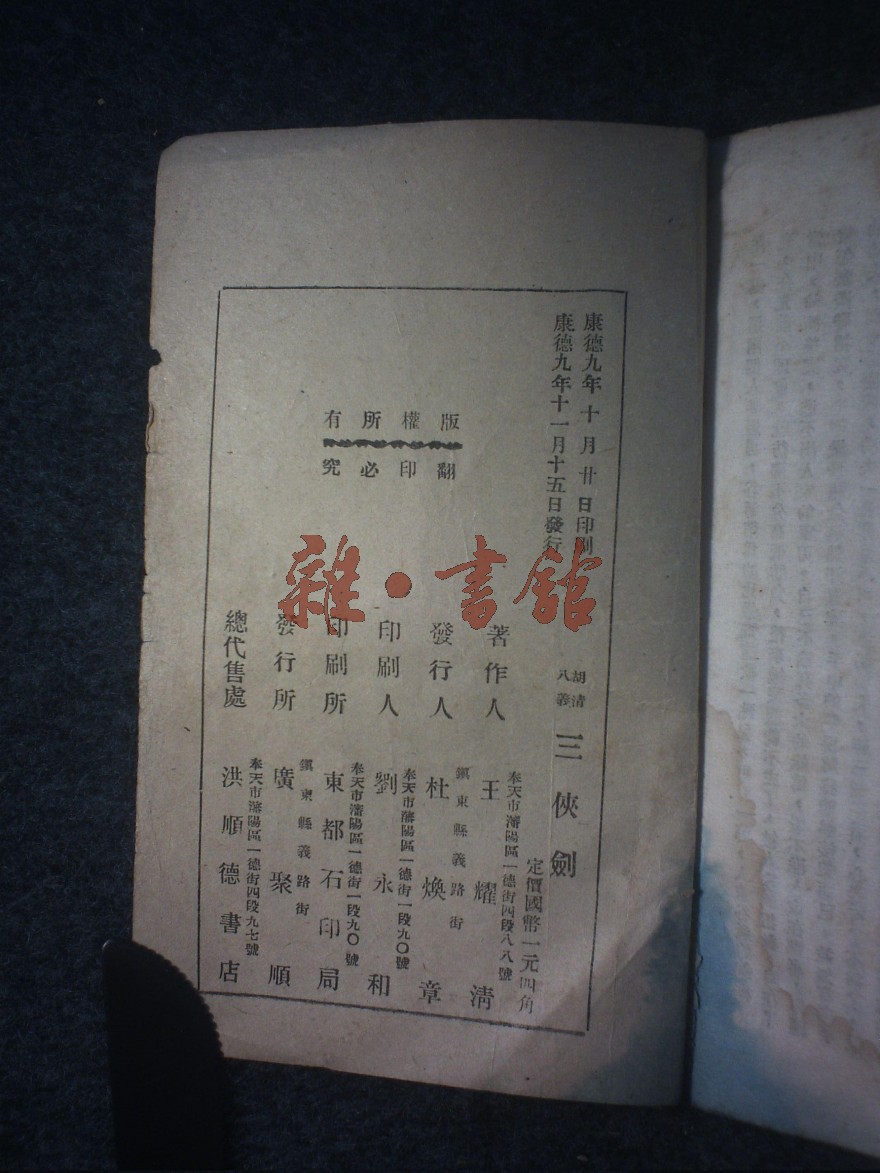 康德九年十月廿日印刷
康德九年十一月十五日發行
胡清
八義
三俠劍
定價國幣一元四角
版權所有
翻印必究
奉天市瀋陽區一德街四段八八號
著作人 王耀清
鎭東縣義路街
發行人 杜煥章
奉天市瀋陽區一德街一段九〇號
印刷人 劉永和
奉天市瀋陽區一德街一段九〇號
印刷所 東都石印局
鎭東縣義路街
發行所 廣聚順
奉天市瀋陽區一德街四段九七號
總代售處 洪順德書店
雜·書館